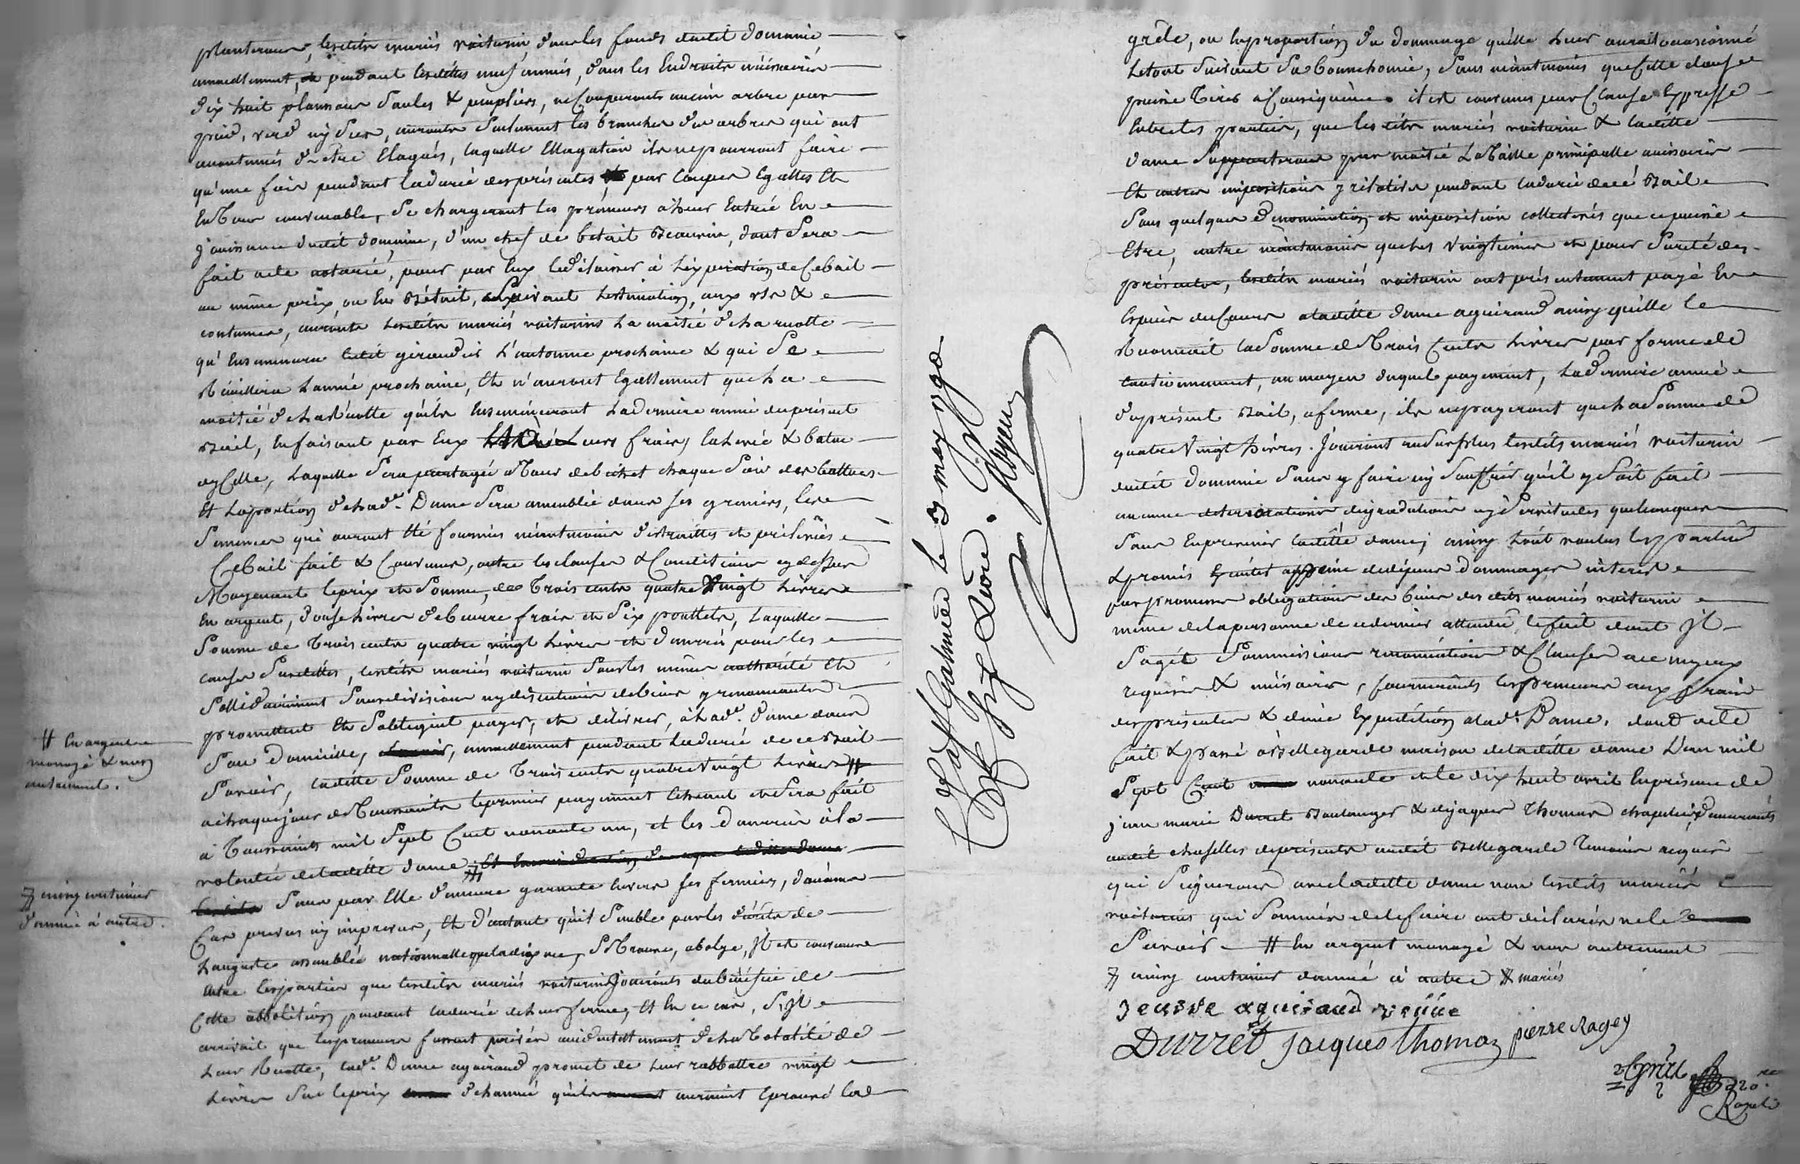 planteront, lesdits mariés voiturin dans les fonds dudit domaine
annuellement, pendant lesdittes neuf années, dans les Endroits nécéssaires
dix huit plançons Saules & peupliers, ne Couperonts aucun arbre par
pied, verd ny Sec, auronts Seulement les branches des arbres qui ont
accoutumés d'être Elagués, laquelle Ellagation ils ne pourront faire
qu'une fois pendant la durée des présentes par Coupes Egalles Et
En tems convenable, Se chargeront les preneurs a leur Entrée En
jouissance dudit domaine, d'un chef de betail
fait acte notarié, pour par Eux le délaisser à l'Expiration de Ce bail
au même prix, ou En Bétail, Suivant l'Estimation, aux us &
coutumes, auronts lesdits mariés voiturins La moitié de la
qu' Ensemencera ledit l'automne prochaine & qui Se
l'année prochaine, Et n'auront Egallement que la
moitié de la qu'ils Ensemenceront La derniere année du présent
Bail, En faisant par Eux Leurs frais, la levée & batue
d'ycelle, Laquelle Sera partagée chaque Soir des battues
Et la portion de lad.e Dame Sera ameublée dans Ses greniers, les
Semences qui auront Eté fournies néantmoins distraittes et prélevées
Ce Bail fait & Convenu, outre les clauses & Conditions cy dessus
Moyenant le prix et Somme, de trois cents quatre Vingt Livres
En argent, douze Livres de beurre frais et Six poullets, Laquelle
Somme de trois cents quatre vingt Livres et danrées pour les
causes Susdittes, lesdits mariés voiturin Sous les mêmes authorité et
Sollidairement Sans division ny discution de biens y renonceants
promettent Et S'obligent payer, et délivrer, à lad.e Dame dans
Son domicille, annuellement pendant la durée de ce Bail
Savoir, laditte Somme de trois cents quatre Vingt Livres #
a chaque jour de Toussaints le premier payement Echeant et Sera fait
à Toussaints mil Sept Cent nonante un, et les danrées à la
volontée de laditte dame
Sans par Elle d'aucune garantie Envers Ses fermiers, d'aucuns
Cas prevus ny imprevus, Et d'autant qu'il Semble par les décrêts de
L'auguste assemblée nationnalle que la dixme, Se trouve, abolye, Il est convenu
Entre les parties que lesdits mariés voiturin Jouironts du bénéfice de
Cette abbolition pendant la durée de leur ferme, Et En ce cas, S'Il
arrivait que les preneurs fussent privés accidentellement de la totalité de
Leur Recolte, lad.e Dame aguiraud promet de Leur rabbattre vingt
Livres Sur le prix de l'année qu'ils auraient Eprouvé La
# En argent
monoyé & non
autrement.
7 ainsy continuer
d'année à autre.
C.lé à St Galmier le 3 may 1790
R
grêle, ou En proportion du dommage qu'elle Leur aurait occasionné
Le tout Suivant Sa bonnehomie, Sans néantmoins que Cette clause
puisse Tirer à Conséquence. il est convenu par Clause Expresse
Entre les parties, que lesdits mariés voiturin & laditte
dame Supporteront par moitié La Taille principalle accéssoires
Et autres impositions y rélatives pendant la durée de cé Bail
Sous quelques dénominations et imposition collectives que ce puisse
Etre, autre néantmoins que les Vingtiemes et pour Sureté des
présentes, lesdits mariés voiturin ont présentement payé En
Especes de Cours a laditte dame aguiraud ainsy qu'elle le
Reconnait la Somme de Trois Cents Livres par forme de
Cautionnement, au moyen duquel payement, La derniere année
du présent Bail, a ferme, ils ne payeront que la Somme de
quatre Vingt Livres. Jouiront au Surplus lesdits mariés voiturin
dudit domaine Sans y faire ny Souffrir qu'il y Soit fait
aucunes déteriorations dégradations ny Servitudes quelconques
Sans En prévenir laditte dame; ainsy tout voulu les parties
& promis Executer a peine de dépens dommages intérêts
par promesse obligations des biens desdits mariés voiturin
même de la personne de ce dernier attendu le fait dont Il
S'agit Soummissions renonciations & Clauses
requises & nécéssaires, fournironts les preneurs aux frais
des présentes & d'une Expedition a lad.e Dame, dont acte
fait & passé à Bellegarde maison de laditte dame L'an mil
Sept Cent nonante et le dix huit avril En présence de
jean marie Durret Boulanger & de jaques Thomas chapelier, demeurants
audit Bellegarde Temoins requis
qui Signeronts avec laditte dame non lesdits mariés
voiturins qui Sommés de le faire ont déclarés ne le
Savoir # En argent monoyé & non autrement
7 ainsy continuer d'année à autre # mariés
aguiraud
Durret jacques thomas pierre Ragey